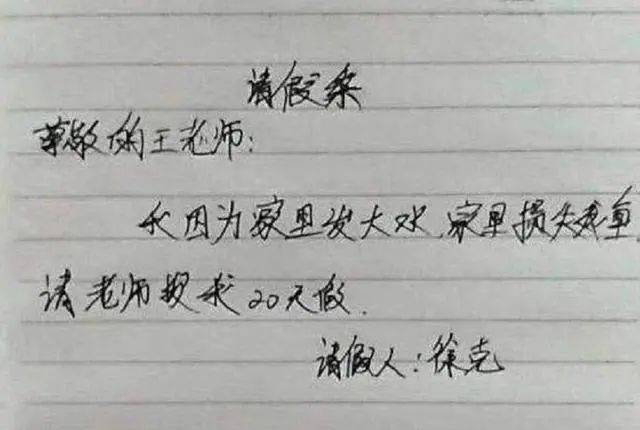 请假条
尊敬的王老师:
我因为家里发大水,家里损失惨重
请老师批我20天假.
请假人:徐克